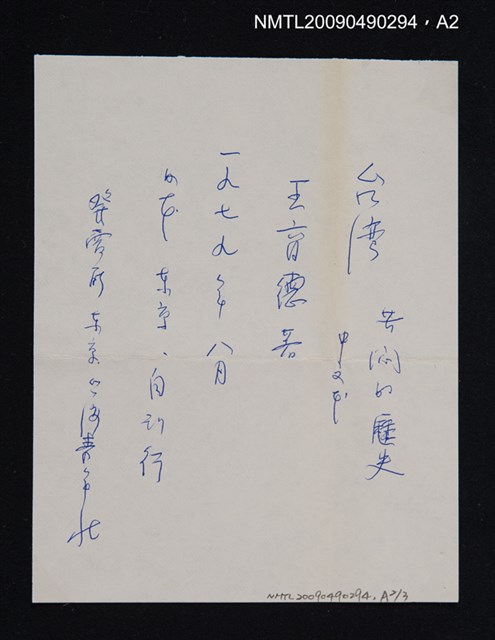 NMTL20090490294，A2
台湾
苦悶的歷史
中文本
王育德著
一九七九年八月
日本 東京、自刊行
發賣所 東京台湾青年社
NMTL20090490294, A2/3